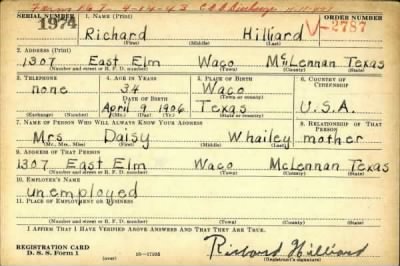 Form 167-4-14-43 C.O.D. Discharge
SERIAL NUMBER 1. NAME (Print) ORDER NUMBER
1974 Richard Hilliard V-2787
(First) (Middle) (Last)
2. ADDRESS (Print)
1307 East Elm Waco McLennan Texas
(Number and street or R. F. D. number) (Town) (County) (State)
3. TELEPHONE 4. AGE IN YEARS 5. PLACE OF BIRTH 6. COUNTRY OF CITIZENSHIP
none 34 Waco
DATE OF BIRTH (Town or county)
April 9 1906 Texas U.S.A.
(Exchange) (Number) (Mo.) (Day) (Yr.) (State or country)
7. NAME OF PERSON WHO WILL ALWAYS KNOW YOUR ADDRESS 8. RELATIONSHIP OF THAT PERSON
Mrs Daisy Whailey mother
(Mr., Mrs., Miss) (First) (Middle) (Last)
9. ADDRESS OF THAT PERSON
1307 East Elm Waco McLennan Texas
(Number and street or R. F. D. number) (Town) (County) (State)
10. EMPLOYER'S NAME
unemployed
11. PLACE OF EMPLOYMENT OR BUSINESS
(Number and street or R. F. D. number) (Town) (County) (State)
I AFFIRM THAT I HAVE VERIFIED ABOVE ANSWERS AND THAT THEY ARE TRUE.
REGISTRATION CARD
D. S. S. Form 1 16-17105 Richard Hilliard
(Registrant's signature)